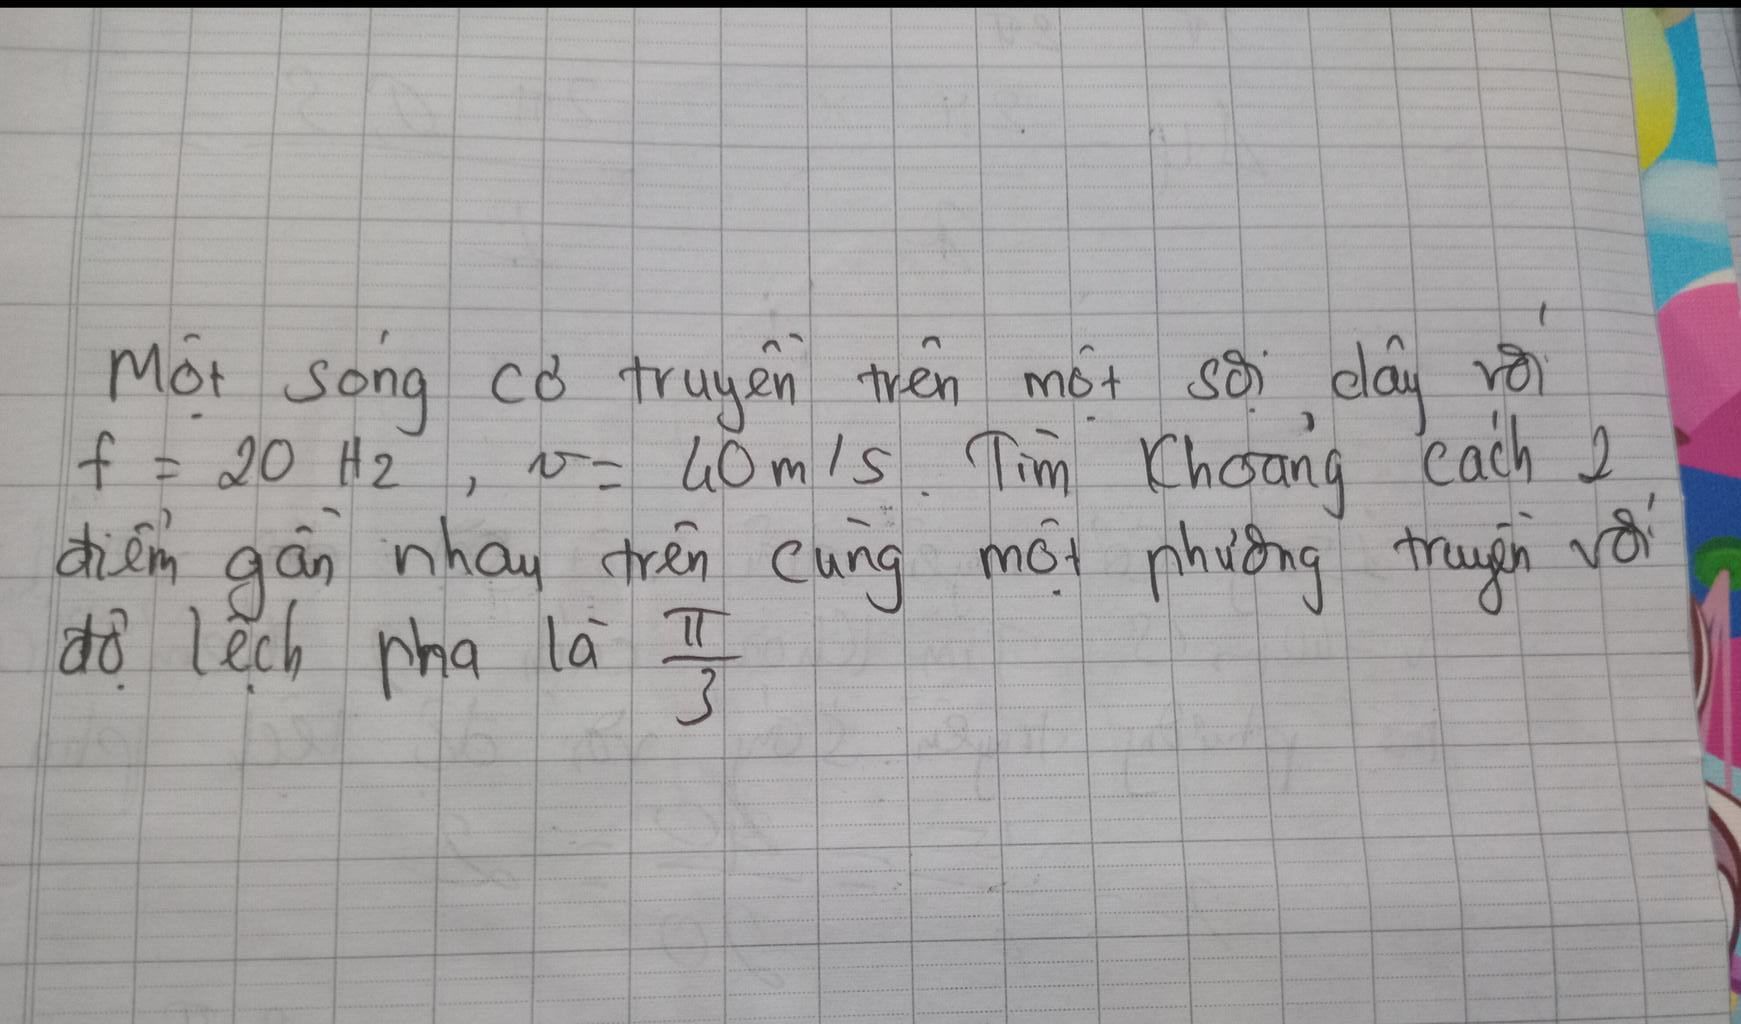 Một sóng cơ truyền trên một sợi dây với
f = 20 Hz, v = 40 m/s. Tìm Khoảng cách 2
điểm gần nhau trên cùng một phương truyền với
độ lệch pha là π/3